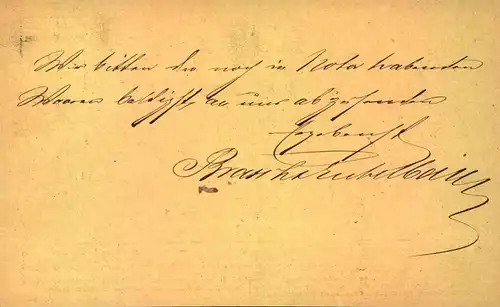 Wir bitten die noch in Nota habenden
Waaren baldigst an uns abzusenden
Ergebenst